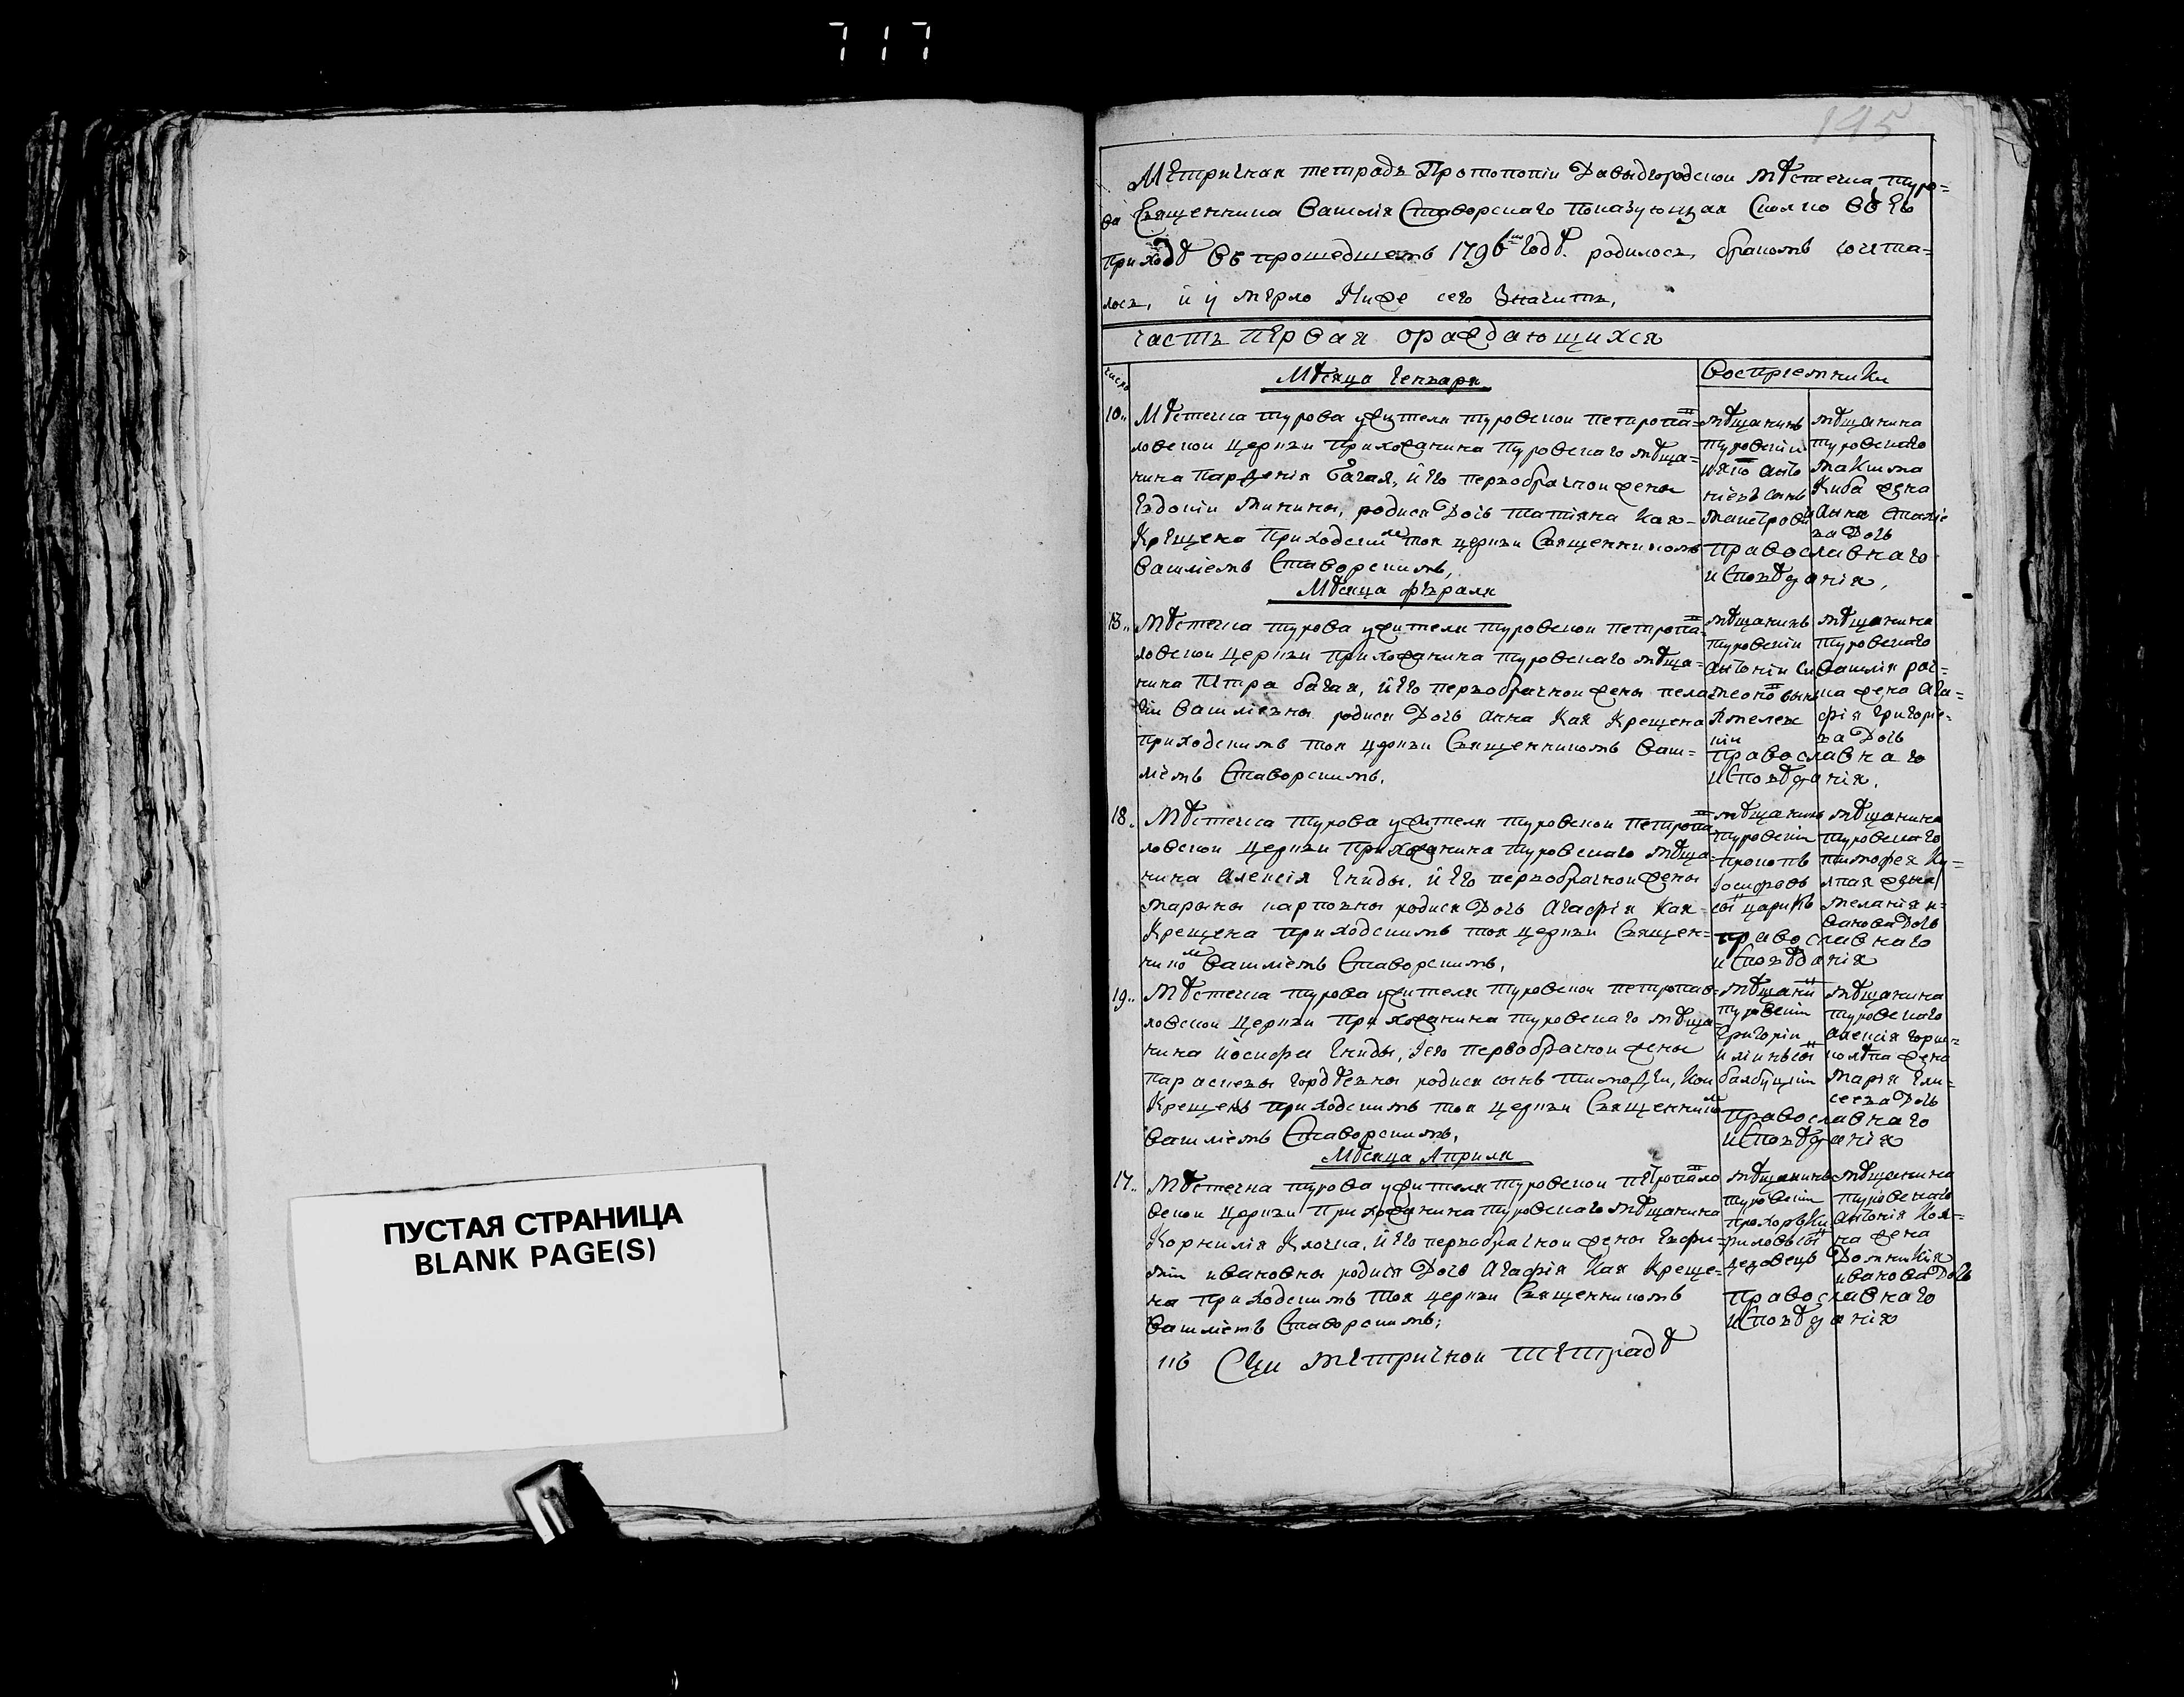 717
195
Метричная тетрадь Протопопіи Давыдгородской мѣстечка туро=
ва Священника Василія Ставорскаго показующая сколко въ его
приходѣ въ прошедшемъ 1796 годѣ. родилось, бракомъ сочета=
лось, и умерло ниже сего значитъ,
часть первая ораждающихся
число
Мѣсяца генваря
Воспрiемники
10..
Мѣстечка турова жителя туровской петропа=
ловской церкви прихожанина туровскаго мѣща=
нина Парфенія Багая, и его первобрачной жены
Евдокіи минины, родися Дочь татіяна кая
Крещена приходскимъ тоя церкви Священникомъ
Василіемъ Ставорскимъ,
мѣщанинъ
туровскіи
сынъ
мѣщанина
туровскаго
максима
жена
Дочь
православнаго
исповѣданія,
Мѣсяца февраля
13..
Мѣстечка турова жителя туровской петропа
ловской церкви прихожанина туровскаго мѣща=
нина Петра багая, и его первобрачной жены пела
гіи Василіевны родися Дочь анна кая Крещена
приходскимъ тоя церкви Священникомъ Васи=
ліемъ Ставорскимъ.
мѣщанинъ
туровскіи
антоніи
мѣщанина
туровскаго
Василія
жена ага=
фія григоріе=
ва Дочь
православнаго
исповѣданія.
18.
Мѣстечка турова жителя туровской петропа
ловской церкви прихожанина туровскаго мѣща
нина алексія гниды, и его первобрачной жены
марыны карповны родися Дочь агафія кая
Крещена приходскимъ тоя церкви Священ=
никомъ Василіемъ Ставорскимъ,
мѣщанинъ
туровскіи
прокопъ
Іосифовъ
мѣщанина
туровскаго
тимофея
жена
меланія и=
ванова Дочь
православнаго
исповѣданія
19..
Мѣстечка турова жителя туровской петропав=
ловской церкви прихожанина туровскаго мѣща
нина Іосифа гниды, его первобрачной жены
параскевы гордѣевны родися сынъ тимофеи, кои
Крещенъ приходскимъ тоя церкви Священникомъ
Василіемъ Ставорскимъ,
мѣщанинъ
туровскіи
григоріи
мѣщанина
туровскаго
алексія
жена
марія ели=
сеева Дочь
православнаго
исповѣданія
Мѣсяца Априля
17..
Мѣстечка турова жителя туровской петропало
вской церкви прихожанина туровскаго мѣщанина
Корнилія Клочка, и его первобрачной жены Евфи=
міи ивановны родися Дочь Агафія кая Креще=
на приходскимъ тоя церкви Священникомъ
Василіемъ Ставорскимъ;
мѣщанинъ
туровскіи
прохоръ
мѣщанина
туровскаго
антонія
жена
Домникія
иванова Дочь
православнаго
исповѣданія
метричной тетрадѣ
ПУСТАЯ СТРАНИЦА
BLANK PAGE(S)